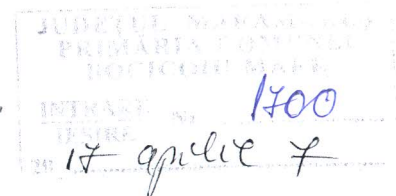 JUDEȚUL MARAMUREȘ
PRIMĂRIA COMUNEI
BOCICOIU MARE
INTRARE Nr. 1700
IEȘIRE
20 17 aprilie 7